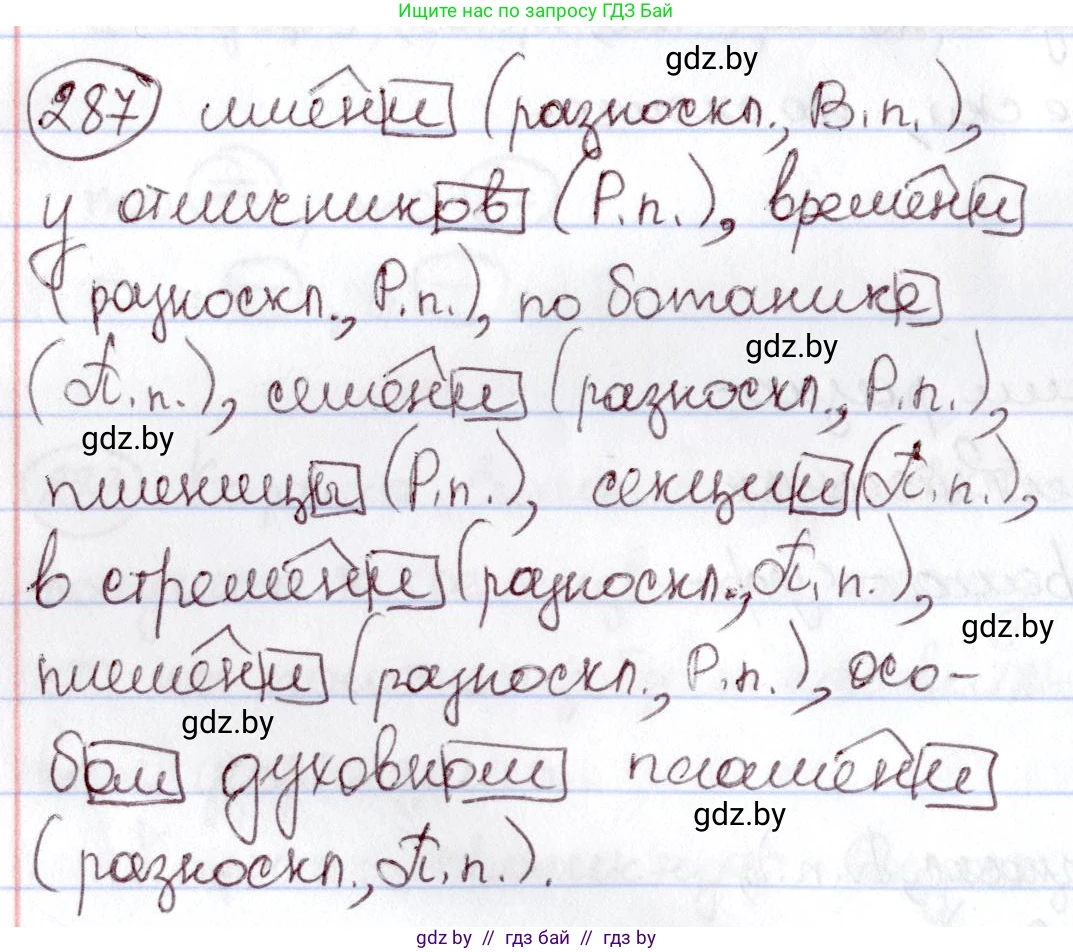 Ищите нас по запросу ГДЗ Бай
gdz.by
287 имени (разноскл., В.п.),
у отличников (Р.п.), времени
(разноскл., Р.п.), по ботанике
gdz.by
(П.п.), семени (разноскл., Р.п.),
gdz.by
пшеницы (Р.п.), секции (П.п.),
в стремени (разноскл., П.п.),
gdz.by
племени (разноскл., Р.п.), осо-
gdz.by
бом духовном пламени
gdz.by
(разноскл., П.п.).
gdz by // гдз бай // гdз by